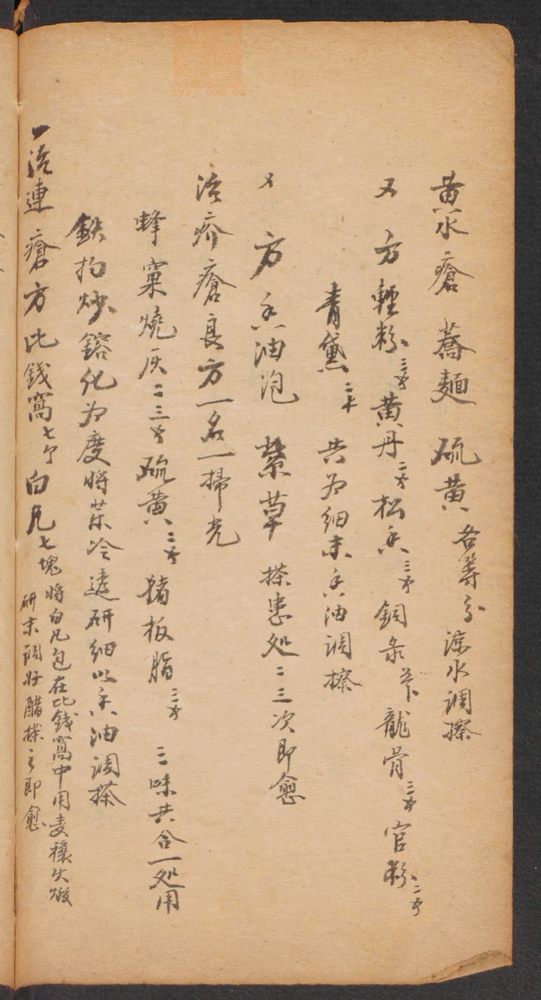 黄水瘡 蕎麵 硫黄 各等分 涼水調擦
又方 輕粉 二錢 黄丹 二錢 松香 三錢 銅彔 龍骨 三錢 官粉 二錢
青黛 共为細末香油調擦
又方 香油泡 紫草 搽患处二三次即愈
治疥瘡良方一名一掃光
蜂窠燒灰 二三錢 硫黄 二錢 猪板脂 三錢 三味共合一处用
鉄杓炒鎔化为度將藥冷透研細以香油調搽
一治連瘡方 比錢窩七个 白凡七塊 將白凡包在比錢窩中用麦穰火煅
研末調好醋搽之即愈